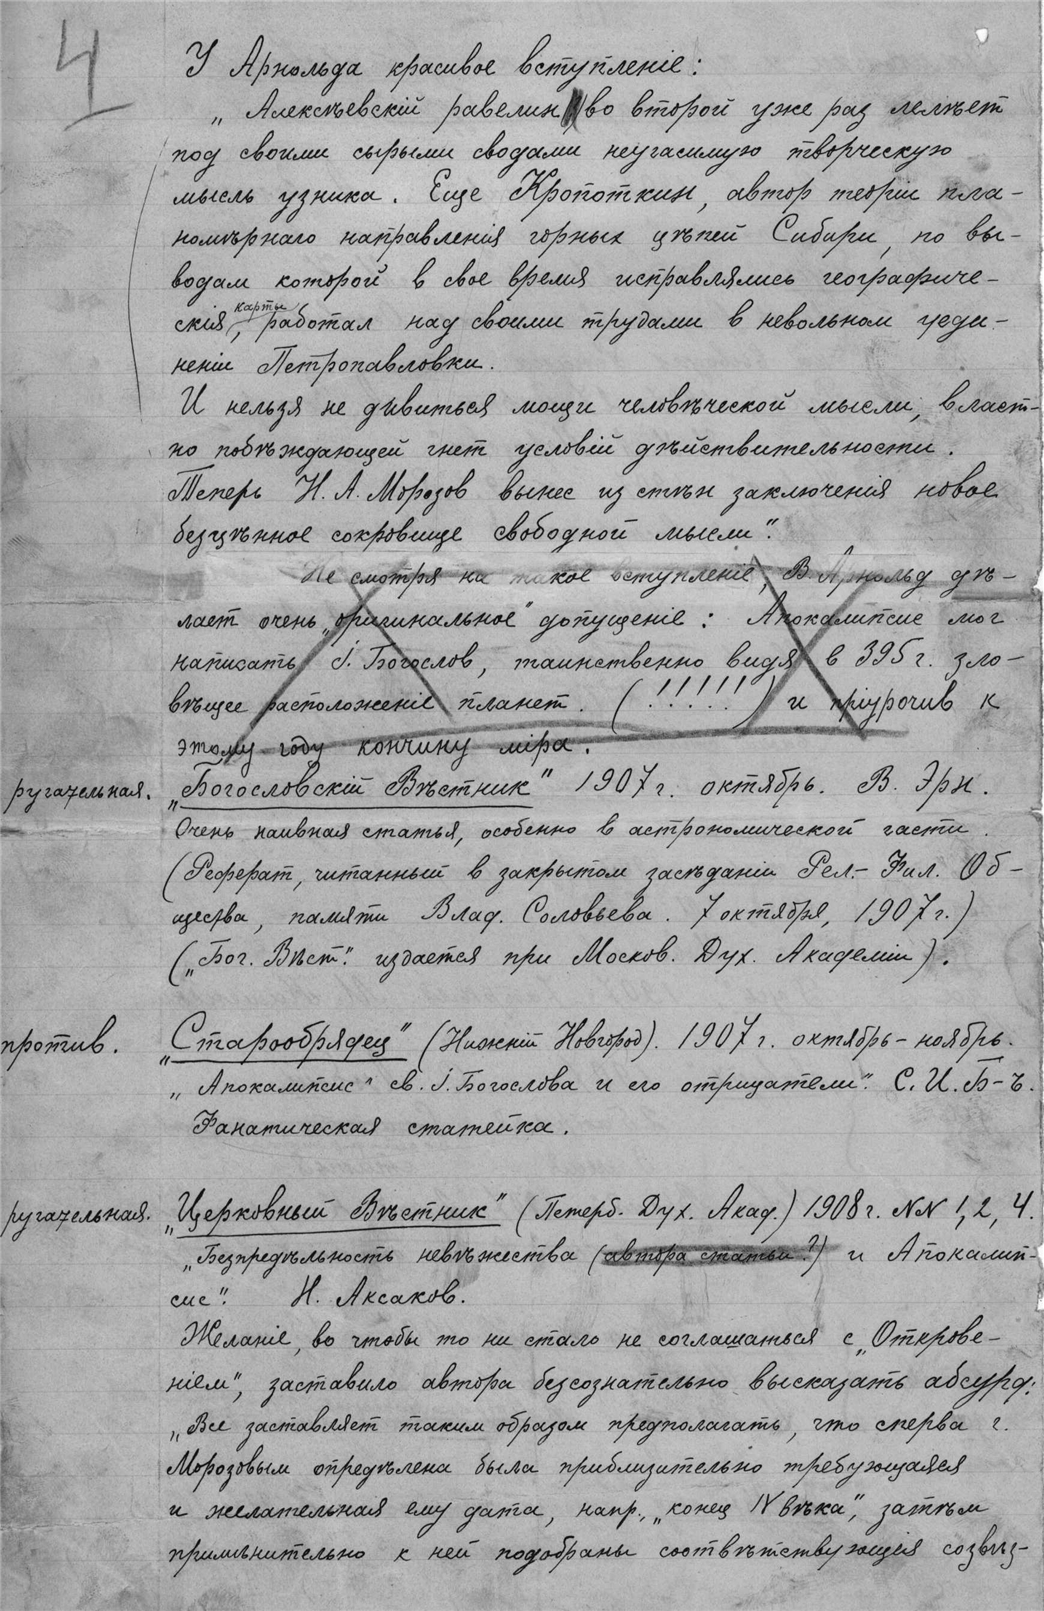 4
У Арнольда красивое вступленіе:
„Алексѣевскій равелин во второй уже раз лелѣет
под своими сырыми сводами неугасимую творческую
мысль узника. Еще Кропоткин, автор теоріи пла-
номѣрнаго направленія горных цѣпей Сибири, по вы-
водам которой в свое время исправлялись географиче-
карты
скія, работал над своими трудами в невольном уеди-
неніи Петропавловки.
И нельзя не дивиться мощи человѣческой мысли, власт-
но побѣждающей гнет условій дѣйствительности.
Теперь Н. А. Морозов вынес из стѣн заключенія новое
безцѣнное сокровище свободной мысли".
Не смотря на такое вступленіе, В. Арнольд дѣ-
лает очень „оригинальное" допущеніе: Апокалипсис мог
написать І. Богослов, таинственно видя в 395 г. зло-
вѣщее расположеніе планет. (!!!!!) и пріурочив к
этому году кончину міра.
ругательная. „Богословскій Вѣстник" 1907 г. октябрь. В. Эрн.
Очень наивная статья, особенно в астрономической части.
(Реферат, читанный в закрытом засѣданіи Рел.-Фил. Об-
щества, памяти Влад. Соловьева. 7 октября, 1907 г.)
(„Бог. Вѣст." издается при Москов. Дух. Академіи).
против. „Старообрядец" (Нижній Новгород). 1907 г. октябрь-ноябрь.
„Апокалипсис" св. І. Богослова и его отрицатели". С. И. Б-ъ.
Фанатическая статейка.
ругательная. „Церковный Вѣстник" (Петерб. Дух. Акад.) 1908 г. NN 1, 2, 4.
„Безпредѣльность невѣжества (автора статьи?) и Апокалип-
сис". Н. Аксаков.
Желаніе, во чтобы то ни стало не соглашаться с „Открове-
ніем", заставило автора безсознательно высказать абсурд:
„Все заставляет таким образом предполагать, что сперва г.
Морозовым опредѣлена была приблизительно требующаяся
и желательная ему дата, напр., „конец IV вѣка", затѣм
примѣнительно к ней подобраны соотвѣтствующія созвѣз-